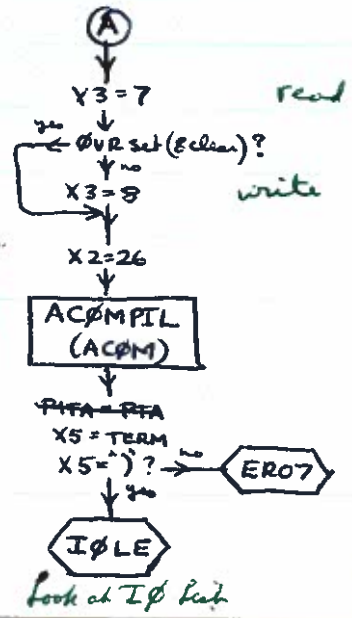 A
X3=7 read
yes ØVR set (& clear)?
no
X3=8 write
X2=26
ACØMPIL
(ACØM)
PITA = PTA
X5 = TERM
X5=")"? no ER07
yes
IØLE
Look at IØ list